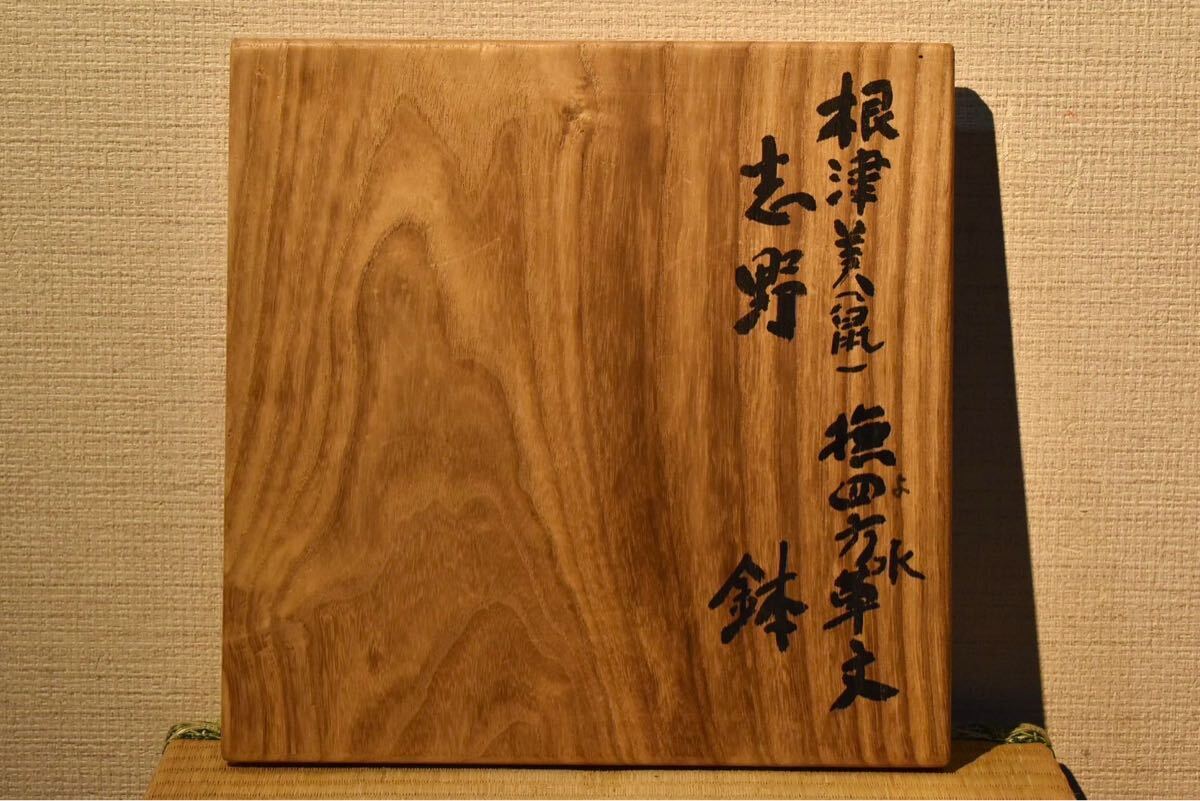 根津美(鼠) 撫四方草文
よ
水
志野 鉢